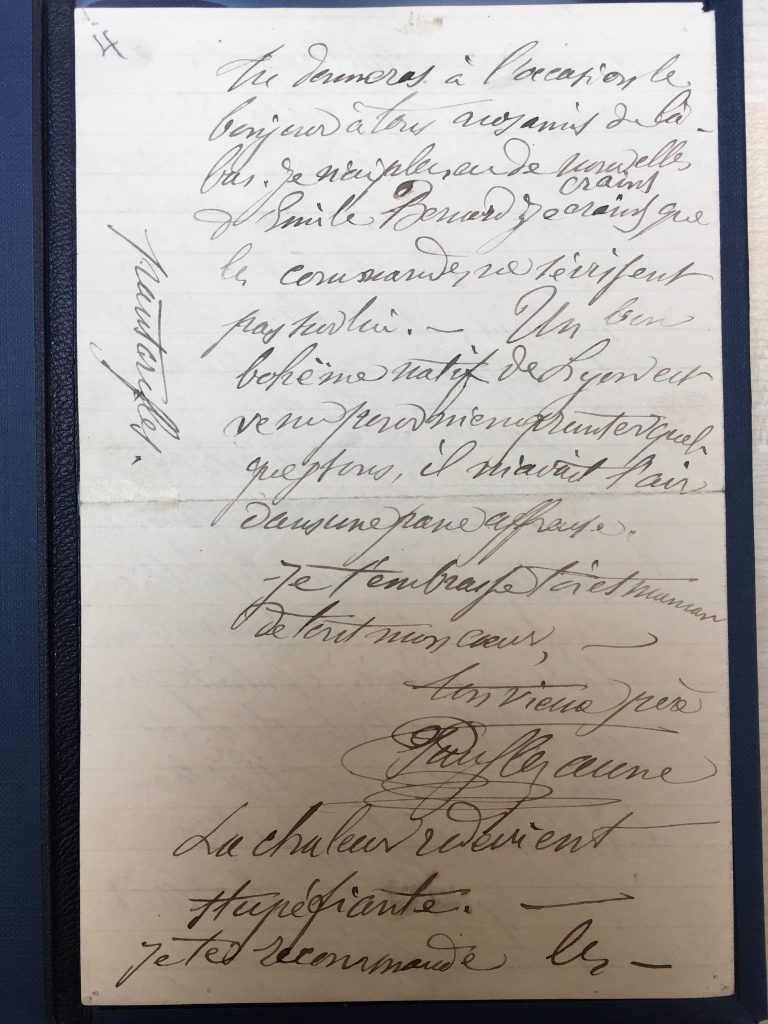 4
Tu donneras à l'occasion le
bonjour à tous nos amis de là-
bas. Je n'ai plus eu de nouvelles
crains
d'Emile Bernard, je crains que
les commandes ne sévissent
pas sur lui. — Un bon
bohème natif de Lyon est
venu pour m'emprunter quel-
ques sous, il m'avait l'air
dans une pane affreuse.
Je t'embrasse toi et maman
de tout mon cœur, —
ton vieux père
Paul Cezanne
La chaleur redevient
stupéfiante. —
Je te recommande les —
pantoufles.